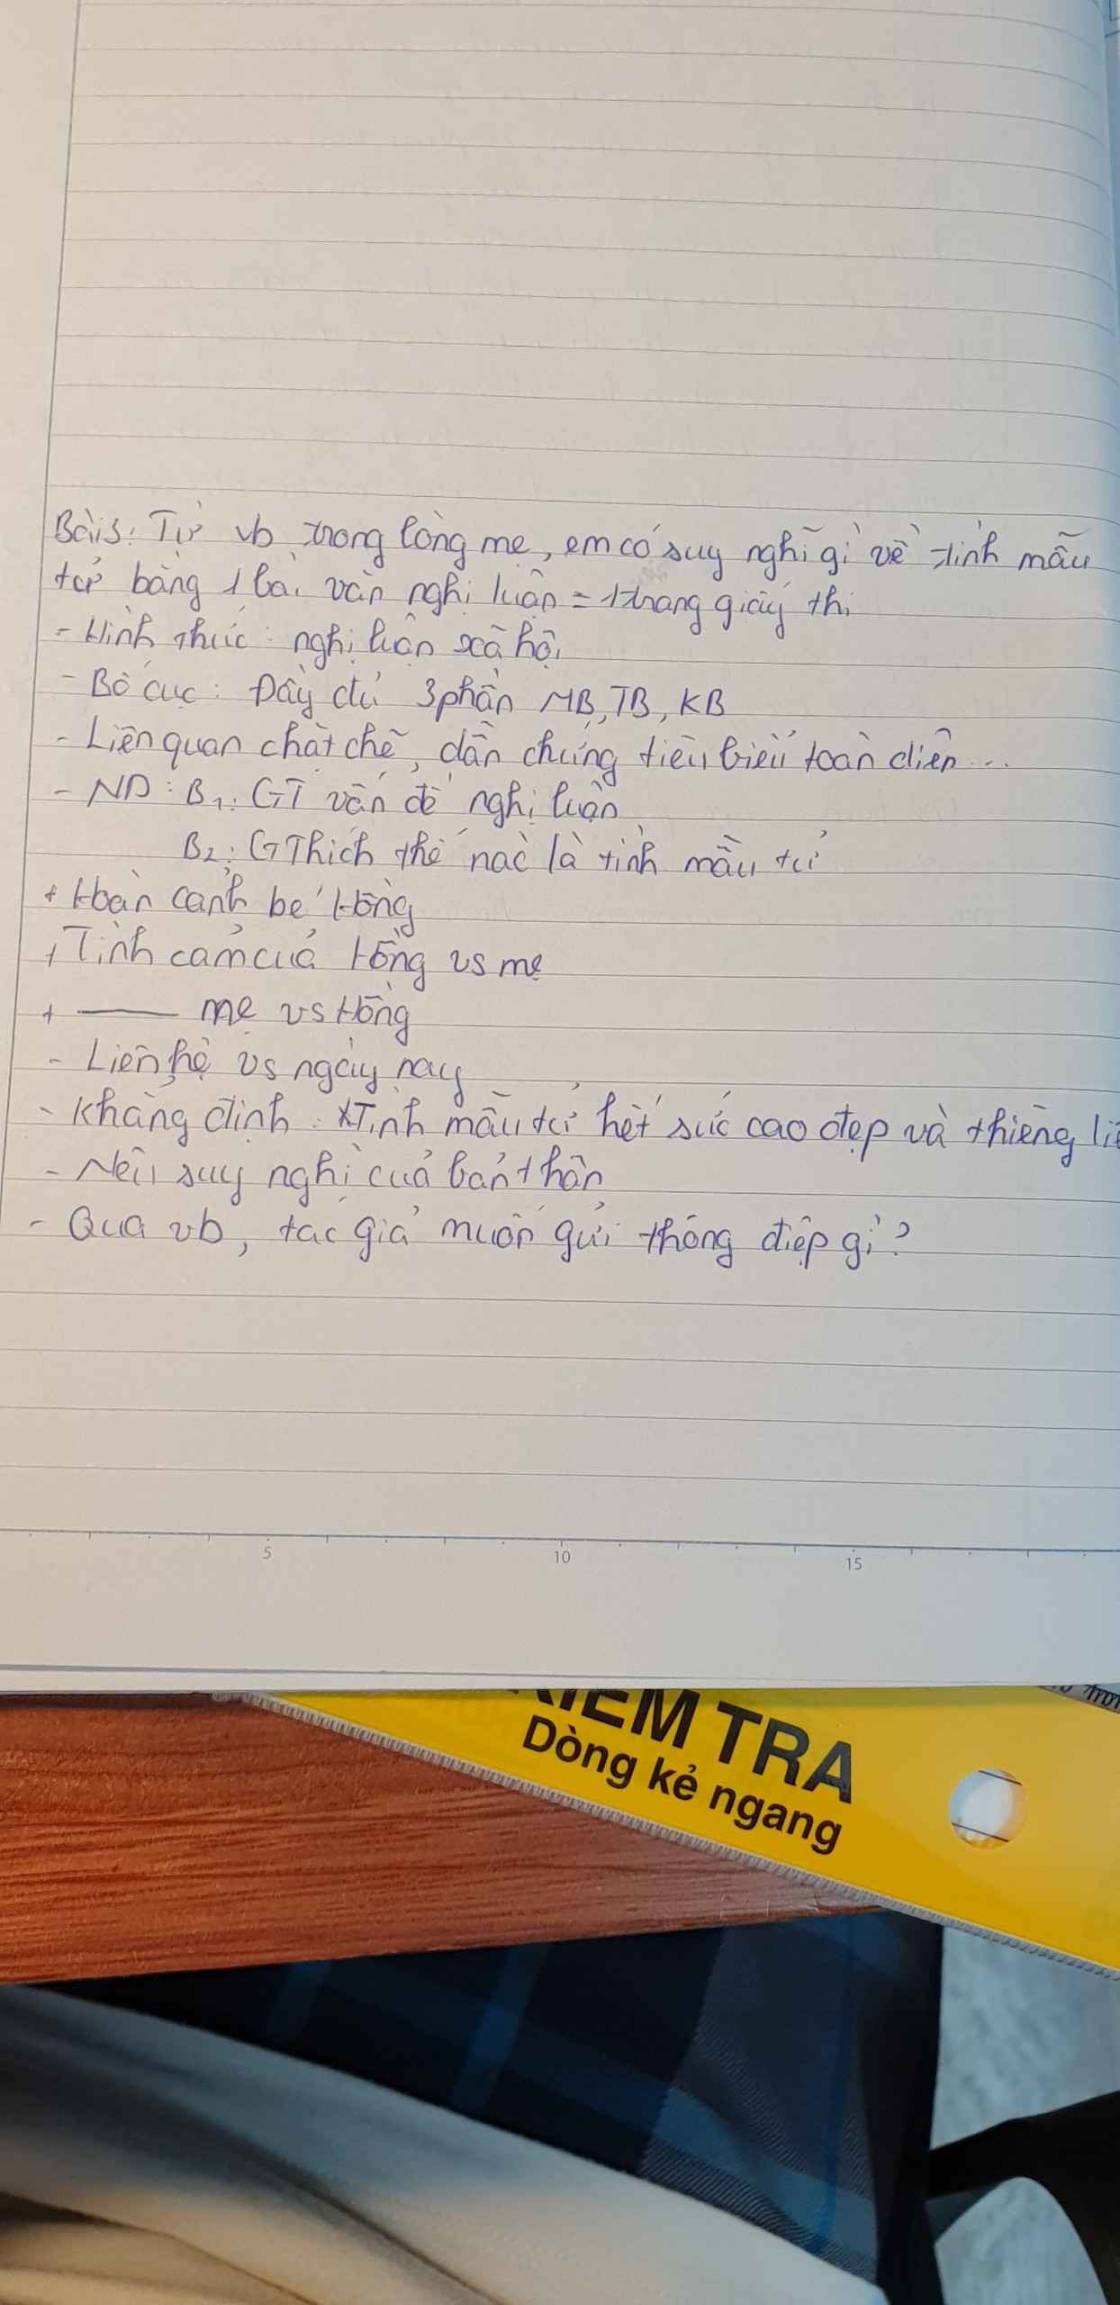 Bài 3: Từ vb trong lòng mẹ, em có suy nghĩ gì về tình mẫu
tử bằng 1 bài văn nghị luận = 1 trang giấy thi
- Hình thức: nghị luận xã hội
- Bố cục: Đầy đủ 3 phần MB, TB, KB
- Liên quan chặt chẽ, dẫn chứng tiêu biểu toàn diện...
- ND: B1: GT vấn đề nghị luận
B2: GThích thế nào là tình mẫu tử
+ Hoàn cảnh bé Hồng
+ Tình cảm của Hồng vs mẹ
+ —— mẹ vs Hồng
- Liên hệ vs ngày nay
- Khẳng định: Tình mẫu tử hết sức cao đẹp và thiêng
- Nêu suy nghĩ của bản thân
- Qua vb, tác giả muốn gửi thông điệp gì?
5 10 15
KIỂM TRA
Dòng kẻ ngang